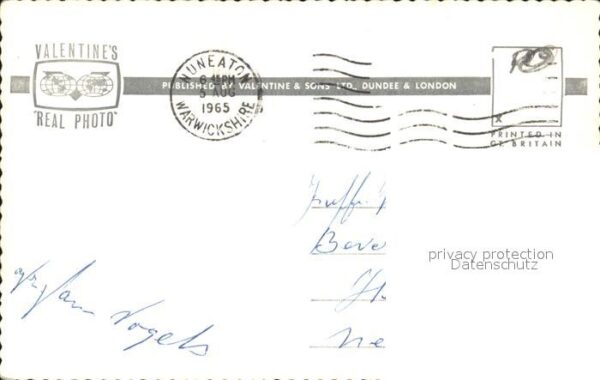 VALENTINE'S
"REAL PHOTO"
PUBLISHED BY VALENTINE & SONS LTD., DUNDEE & LONDON
NUNEATON
6 45PM
5 AUG
1965
WARWICKSHIRE
PRINTED IN
GT. BRITAIN
privacy protection
Datenschutz
Jan Vogels
Ne